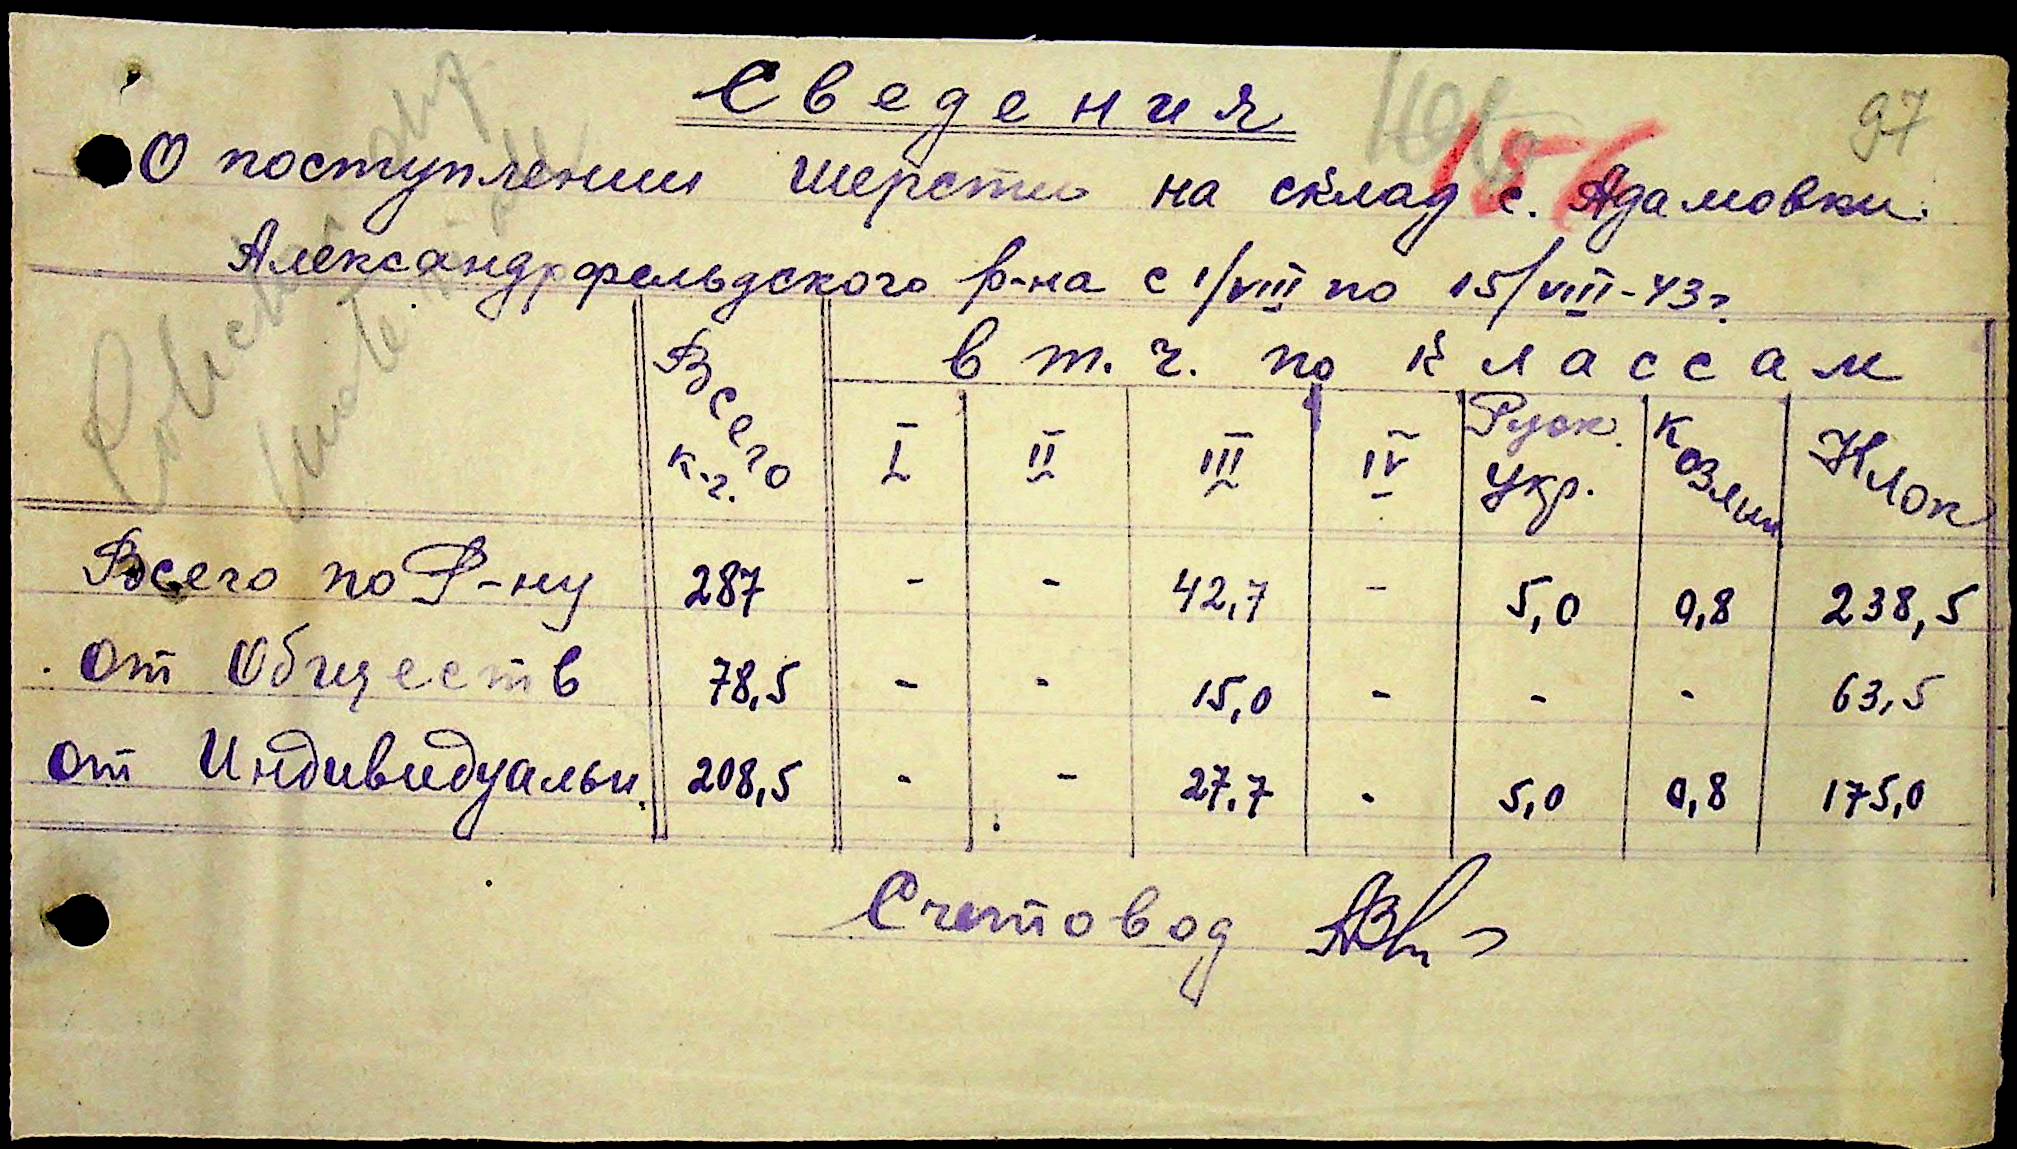 Сведения
97
О поступлении шерсти на склад с. Адамовки.
Александрфельдского р-на с 1/VIII по 15/VIII-43 г.
Всего к.г. в т.ч. по классам
I II III IV Руск. Укр. Козлин Клок
Всего по Р-ну 287 - - 42,7 - 5,0 0,8 238,5
от Обществ 78,5 - - 15,0 - - - 63,5
от Индивидуальн. 208,5 - - 27,7 - 5,0 0,8 175,0
Счетовод